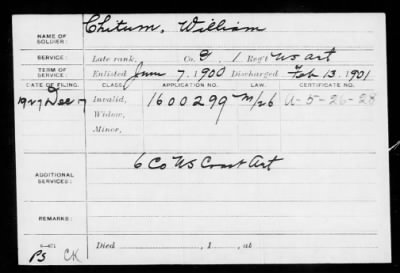 NAME OF SOLDIER: Chitum, William
SERVICE: Late rank, Co. G, 1 Reg't US Art
TERM OF SERVICE: Enlisted June 7, 1900 Discharged Feb 13, 1901
DATE OF FILING. CLASS. APPLICATION NO. CERTIFICATE NO.
1927 Dec 17 Invalid, 1600299 A-5-26-28
Widow,
Minor,
6 Co US Coast Art
ADDITIONAL SERVICES:
REMARKS:
Died , 1 , at
PS CK